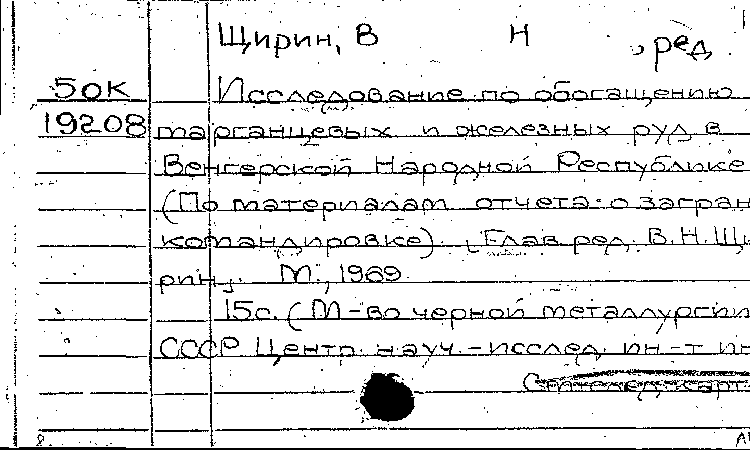 Щирин, В Н , ред
50К Исследование по обогащению
19208 марганцевых и железных руд в
Венгерской Народной Республике
(По материалам отчета о загран
командировке). [Глав ред. В.Н.Щи
рин]. М., 1969.
15с. (М-во черной металлургии
СССР Центр. науч.-исслед. ин-т ин